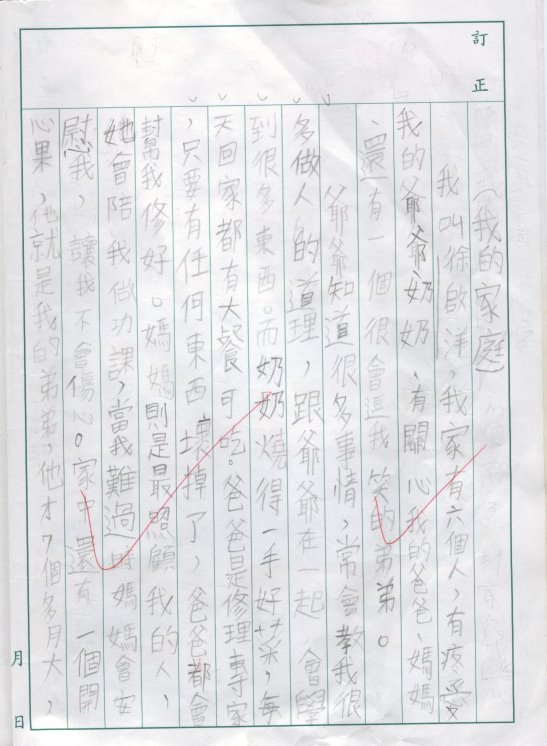 訂正
(我的家庭)
我叫徐啟洋，我家有六個人，有疼愛
我的爺爺、奶奶、有關心我的爸爸、媽媽
、還有一個很會逗我笑的弟弟。
爺爺知道很多事情，常會教我很
多做人的道理，跟爺爺在一起會學
到很多東西。而奶奶燒得一手好菜，每
天回家都有大餐可吃。爸爸是修理專家
，只要有任何東西壞掉了，爸爸都會
幫我修好。媽媽則是最照顧我的人，
她會陪我做功課，當我難過時媽媽會安
慰我，讓我不會傷心。家中還有一個開
心果，他就是我的弟弟，他才7個多月大，
月日